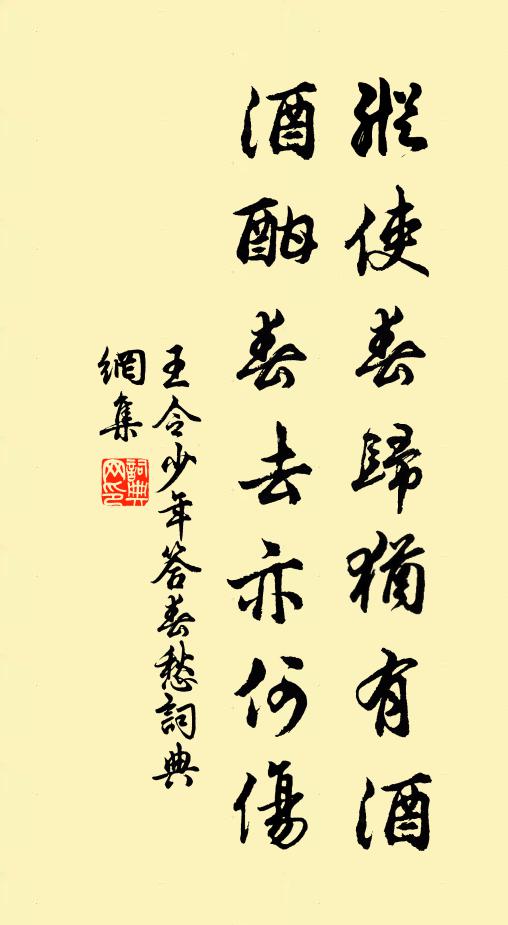 縱使春歸猶有酒
酒酣春去亦何傷
王令少年答春愁詞典
網集
詞典
網印